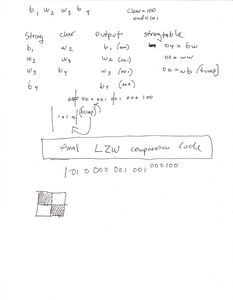 b₁ w₂ w₃ b₄
clear=100
end=101
string char output stringtable
b₁ w₂ b₁ (000) 04 = bw
w₂ w₃ w₂ (001) 05 = ww
w₃ b₄ w₃ (001) 06 = wb (bump)
b₄ b₄
000 001 001 000 100
101 0 (bump)
Final LZW compression Code
101 0 000 001 001 000 100